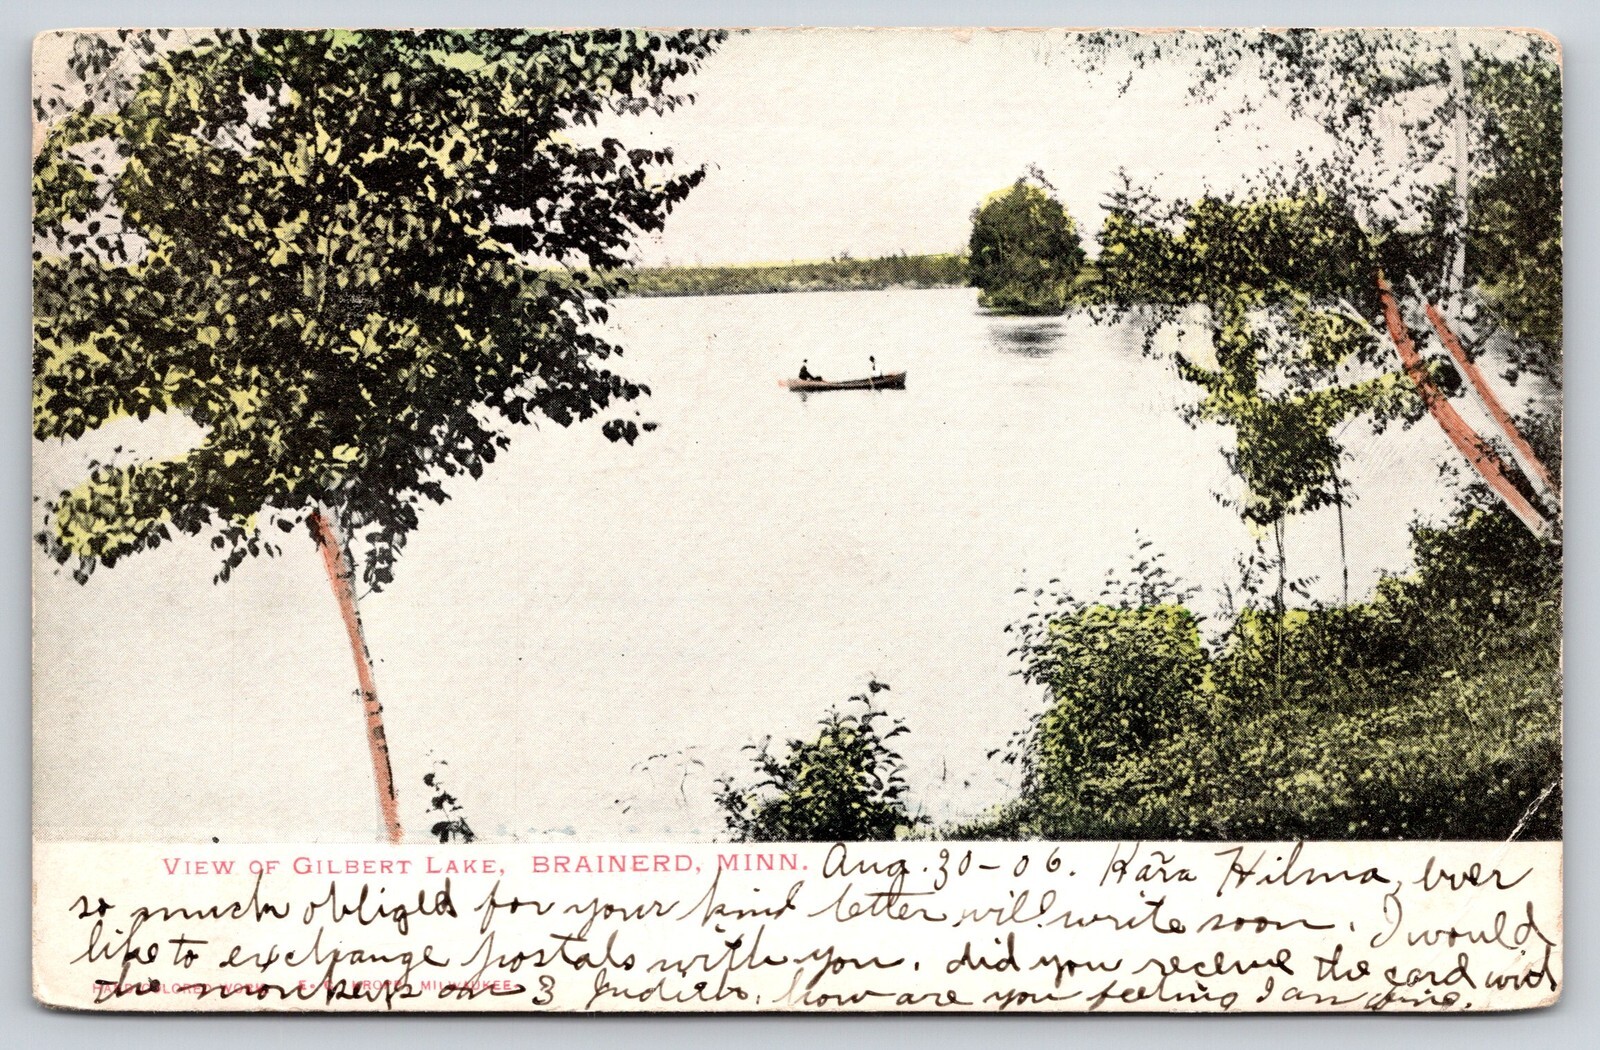 VIEW OF GILBERT LAKE, BRAINERD, MINN. Aug. 30-06. Kära Hilma, ever
so much obliged for your kind letter will write soon. I would
like to exchange postals with you. did you receive the card with
the monkeys on 3 how are you feeling I am fine.
HAND COLORED WORK E. C. KROPP, MILWAUKEE